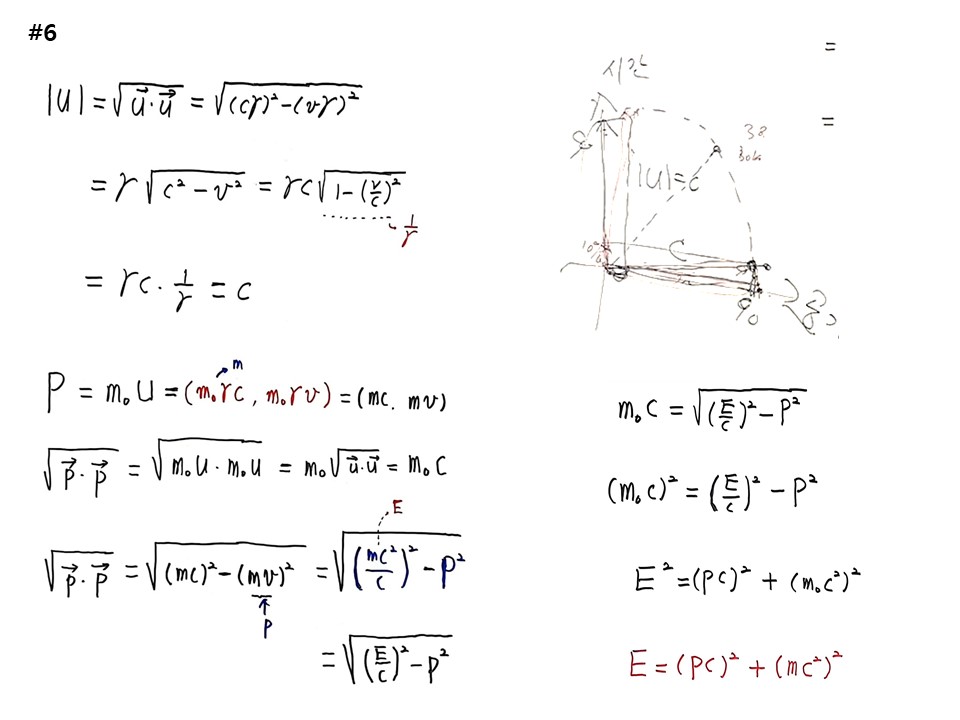 #6
|U| = √(u⃗·u⃗) = √((cγ)²-(vγ)²)
= γ√(c²-v²) = γc√(1-(v/c)²)
1/γ
= γc · 1/γ = c
m
P = m₀U = (m₀γc, m₀γv) = (mc. mv)
√(p⃗·p⃗) = √(m₀U·m₀U) = m₀√(u⃗·u⃗) = m₀C
E
√(p⃗·p⃗) = √((mc)²-(mv)²) = √((mc²/c)²-P²)
P
= √((E/c)²-P²)
=
=
시간
|U|=c
C
m₀C = √((E/c)²-P²)
(m₀c)² = (E/c)² - P²
E² = (pc)² + (m₀c²)²
E = (pc)² + (mc²)²